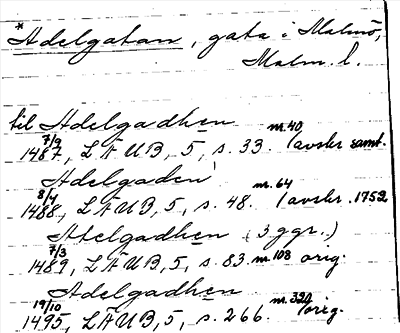 *Adelgatan, gata i Malmö,
Malm. l.
til Adelgadhen
7/9 1487, LÄUB, 5, s. 33. nr. 40 (avskr. samt.
Adelgaden
8/4 1488, LÄUB, 5, s. 48. nr. 64 (avskr. 1752
Atelgadhen (3 ggr.)
7/3 1489, LÄUB, 5, s. 83. nr. 108 orig.
Adelgadhen
19/10 1495, LÄUB, 5, s. 266. nr. 320 orig.